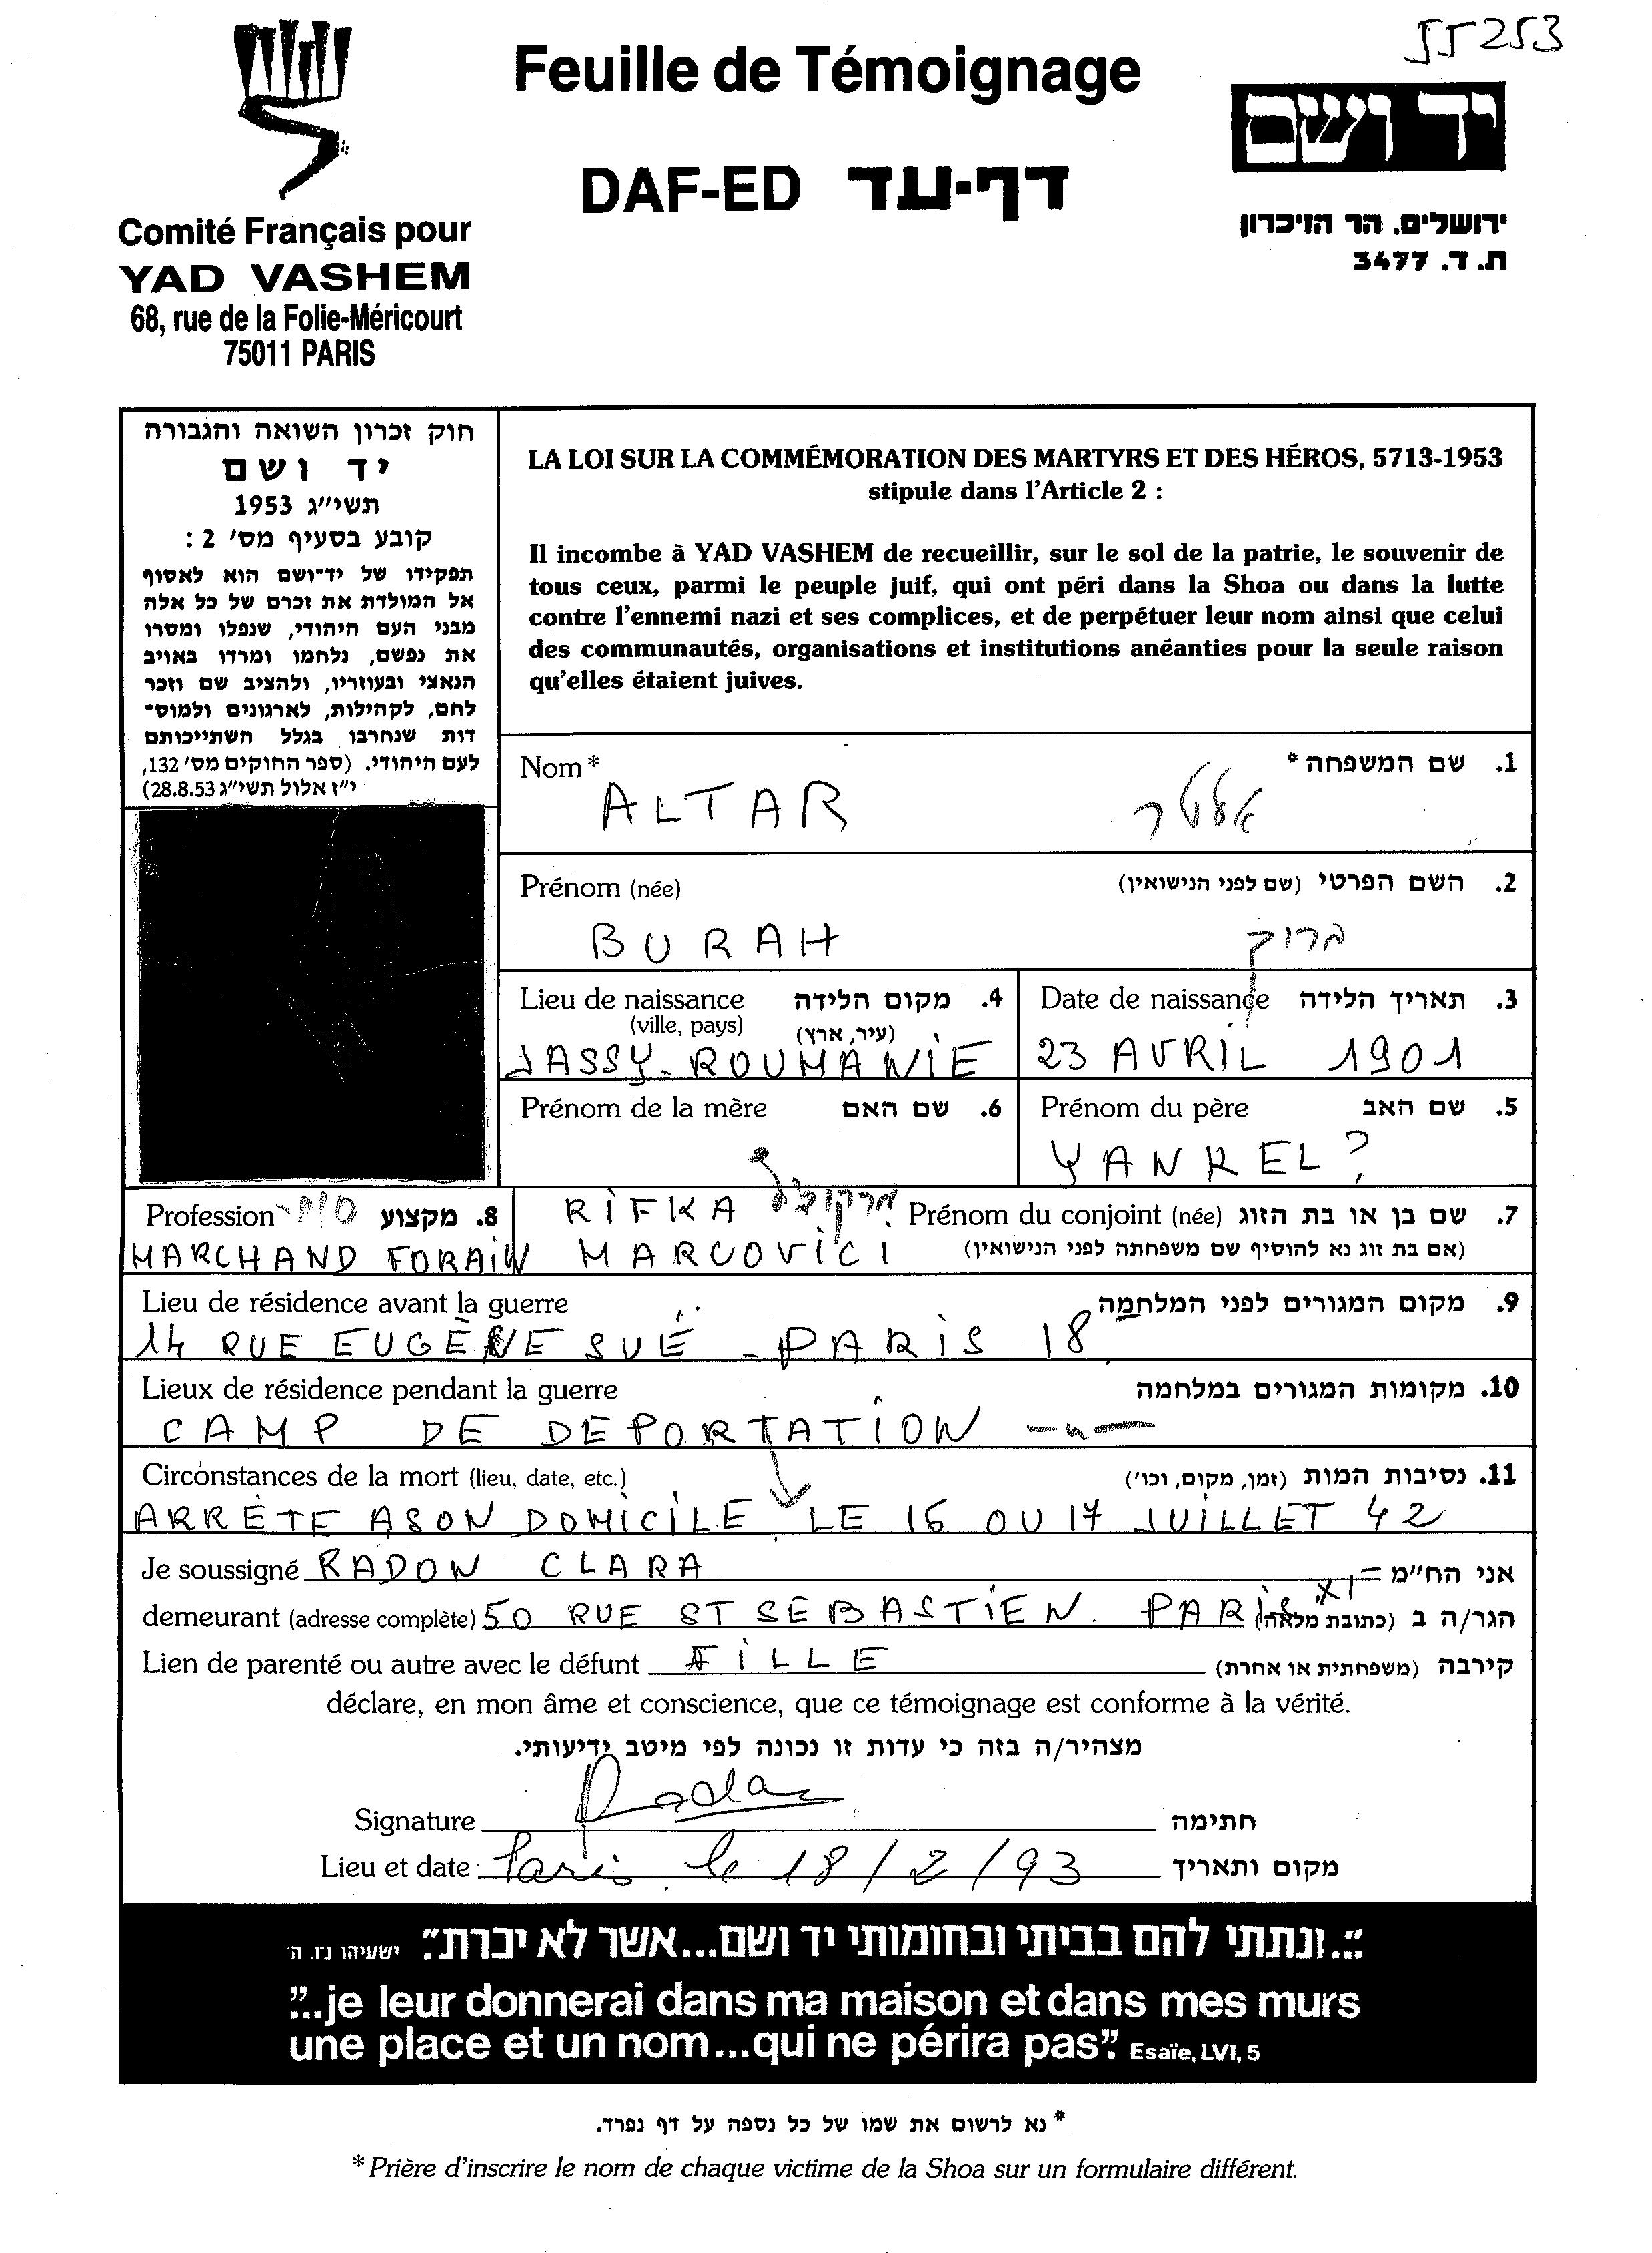 55253
Feuille de Témoignage
DAF-ED דף-עד
Comité Français pour
YAD VASHEM
68, rue de la Folie-Méricourt
75011 PARIS
יד ושם
ירושלים, הר הזיכרון
ת. ד. 3477
חוק זכרון השואה והגבורה
יד ושם
תשי״ג 1953
קובע בסעיף מס׳ 2 :
תפקידו של יד־ושם הוא לאסוף
אל המולדת את זכרם של כל אלה
מבני העם היהודי, שנפלו ומסרו
את נפשם, נלחמו ומרדו באויב
הנאצי ובעוזריו, ולהציב שם וזכר
להם, לקהילות, לארגונים ולמוס־
דות שנחרבו בגלל השתייכותם
לעם היהודי. (ספר החוקים מס׳ 132,
י״ז אלול תשי״ג 28.8.53)
LA LOI SUR LA COMMÉMORATION DES MARTYRS ET DES HÉROS, 5713-1953
stipule dans l'Article 2 :
Il incombe à YAD VASHEM de recueillir, sur le sol de la patrie, le souvenir de
tous ceux, parmi le peuple juif, qui ont péri dans la Shoa ou dans la lutte
contre l'ennemi nazi et ses complices, et de perpétuer leur nom ainsi que celui
des communautés, organisations et institutions anéanties pour la seule raison
qu'elles étaient juives.
Nom* 1. שם המשפחה *
ALTAR אלטר
Prénom (née) 2. השם הפרטי (שם לפני הנישואין)
BURAH ברוך
Lieu de naissance 4. מקום הלידה
(ville, pays) (עיר, ארץ)
JASSY - ROUMANIE
Date de naissance 3. תאריך הלידה
23 AVRIL 1901
Prénom de la mère 6. שם האם
Prénom du père 5. שם האב
YANKEL ?
Profession 8. מקצוע
MARCHAND FORAIN
Prénom du conjoint (née) 7. שם בן או בת הזוג
(אם בת זוג נא להוסיף שם משפחתה לפני הנישואין)
RIFKA מרקוביץ
MARCOVICI
Lieu de résidence avant la guerre 9. מקום המגורים לפני המלחמה
14 RUE EUGÈNE SUÉ - PARIS 18
Lieux de résidence pendant la guerre 10. מקומות המגורים במלחמה
CAMP DE DEPORTATION
Circonstances de la mort (lieu, date, etc.) 11. נסיבות המות (זמן, מקום, וכו׳)
ARRÈTE A SON DOMICILE LE 16 OU 17 JUILLET 42
Je soussigné RADON CLARA אני הח״מ
demeurant (adresse complète) 50 RUE ST SEBASTIEN. PARIS XI הגר/ה ב (כתובת מלאה)
Lien de parenté ou autre avec le défunt FILLE קירבה (משפחתית או אחרת)
déclare, en mon âme et conscience, que ce témoignage est conforme à la vérité.
מצהיר/ה בזה כי עדות זו נכונה לפי מיטב ידיעותי.
Signature Radon חתימה
Lieu et date Paris le 18/2/93 מקום ותאריך
״...ונתתי להם בביתי ובחומותי יד ושם...אשר לא יכרת״ ישעיהו נ״ו, ה׳
"...je leur donnerai dans ma maison et dans mes murs
une place et un nom...qui ne périra pas" Esaïe, LVI, 5
* נא לרשום את שמו של כל נספה על דף נפרד.
* Prière d'inscrire le nom de chaque victime de la Shoa sur un formulaire différent.